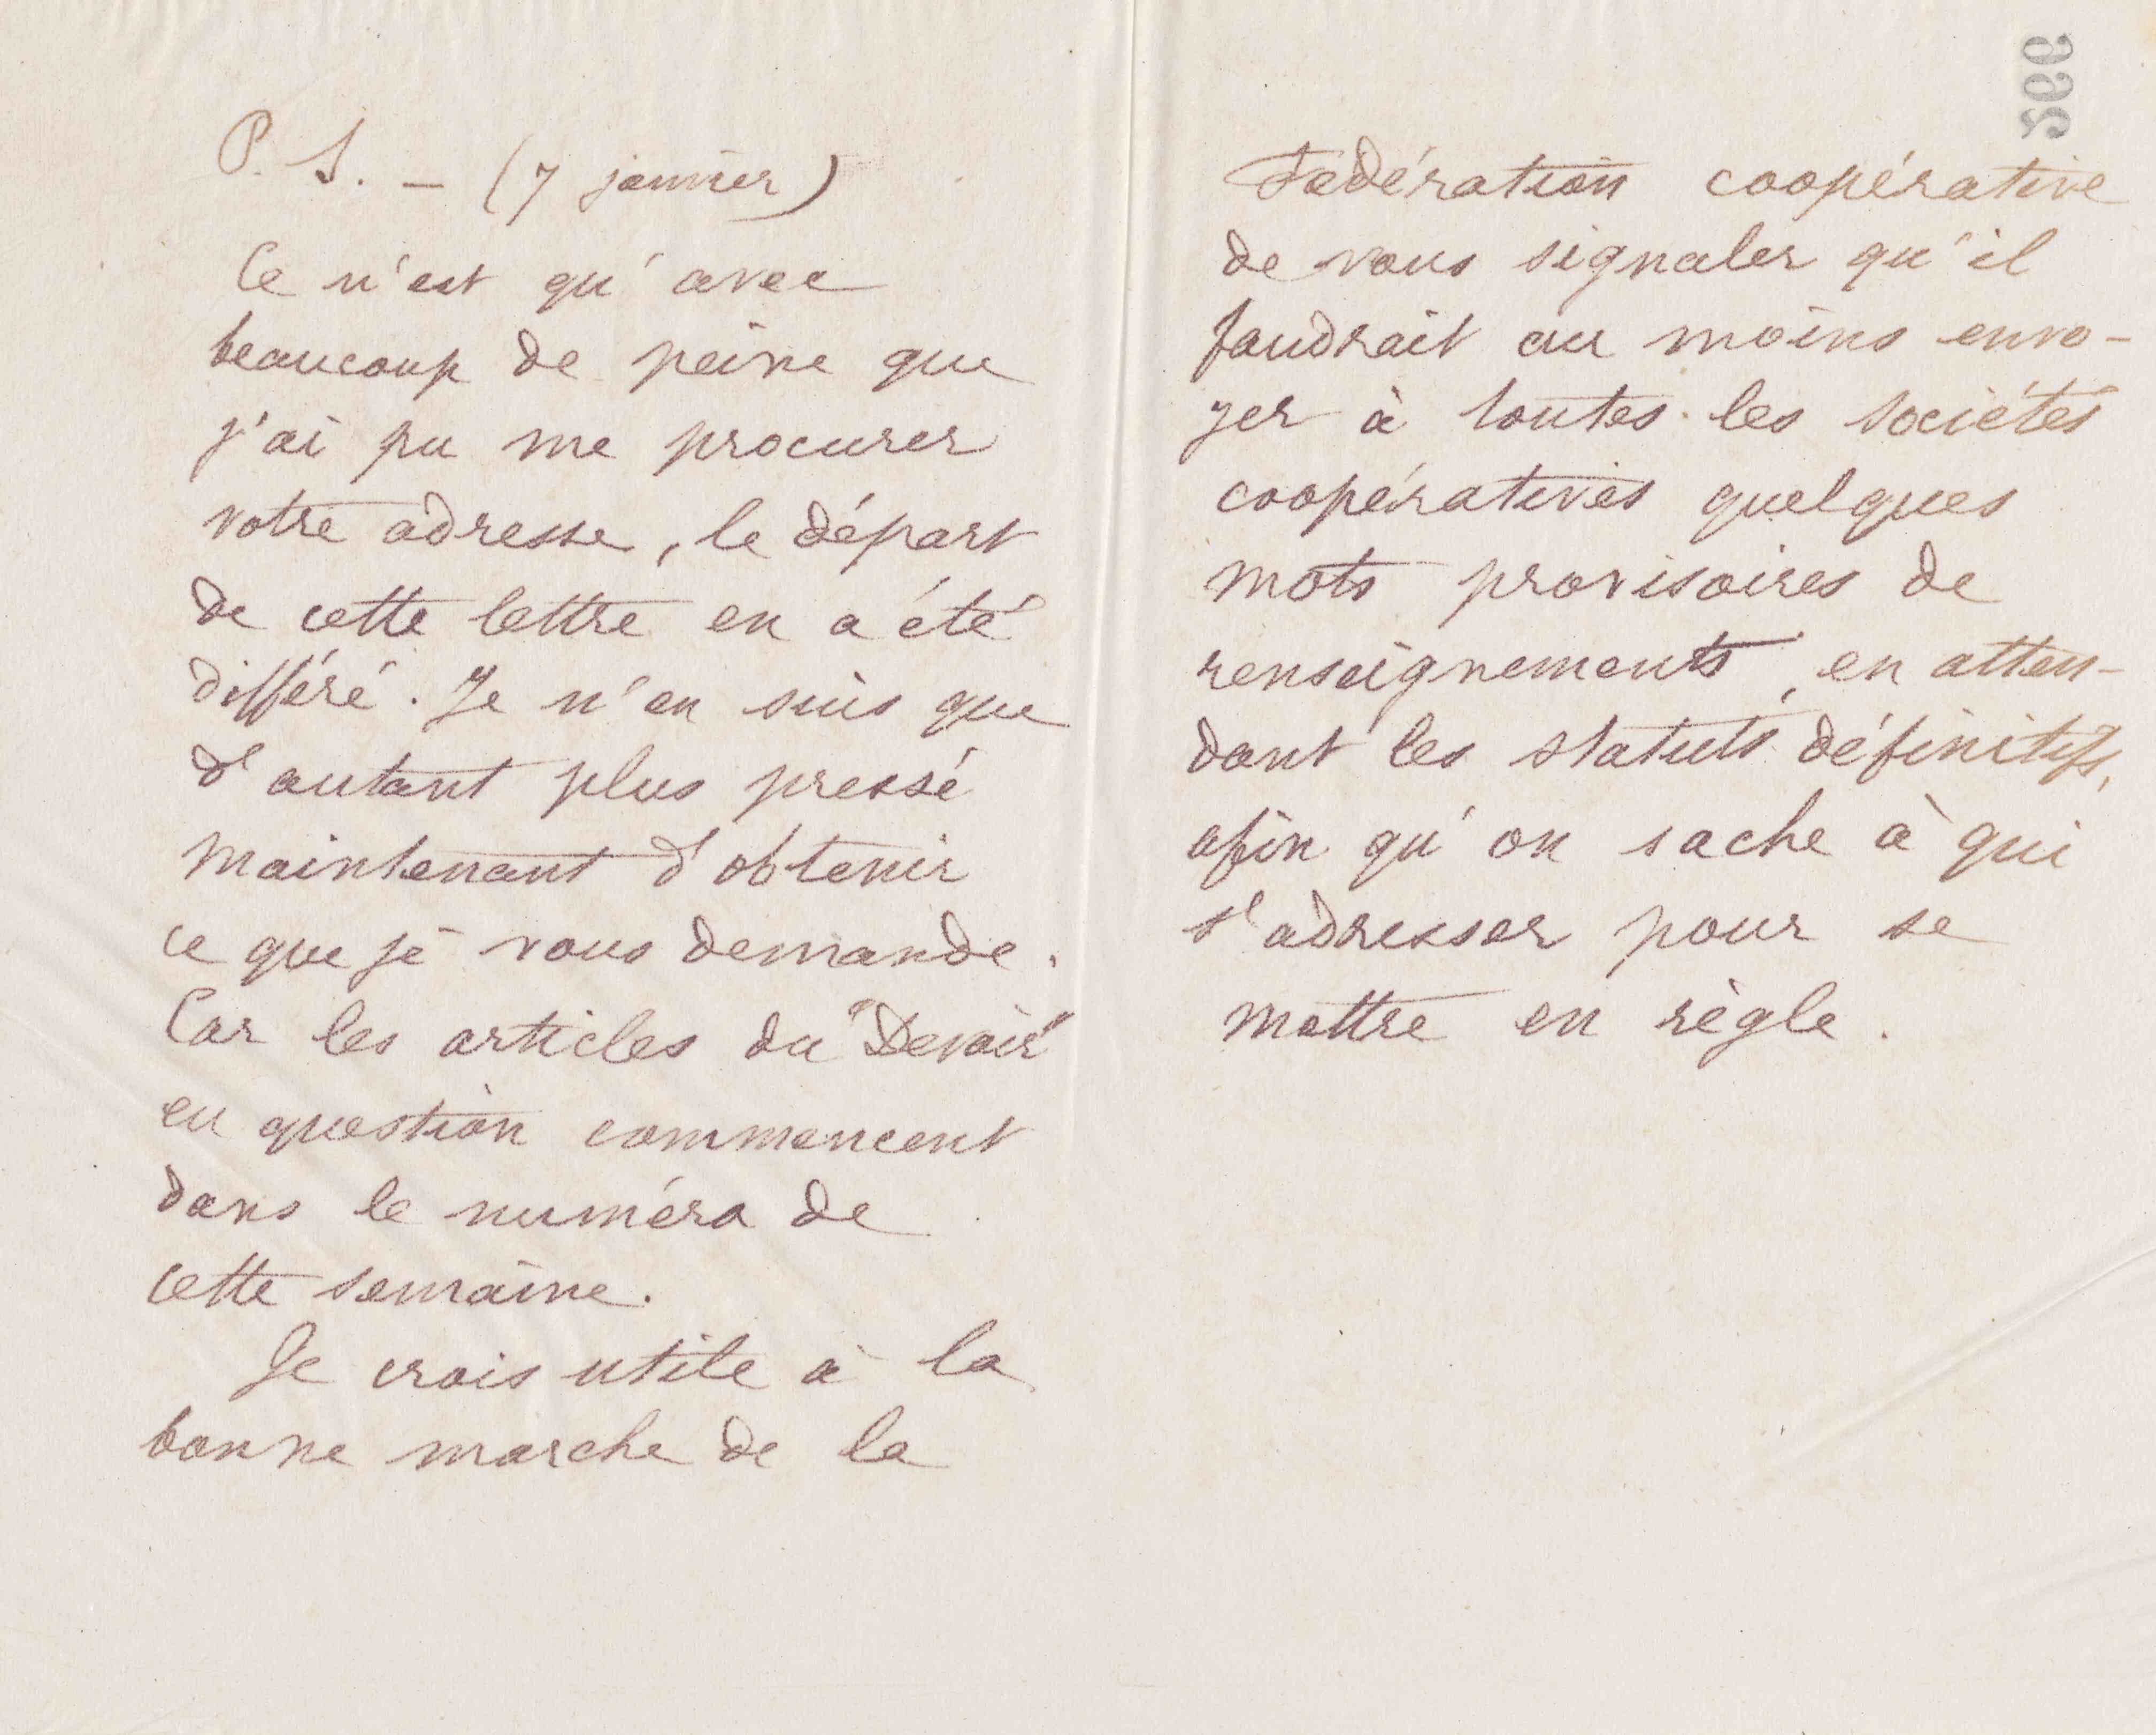 P. S. – (7 janvier)
Ce n'est qu'avec
beaucoup de peine que
j'ai pu me procurer
votre adresse, le départ
de cette lettre en a été
différé. Je n'en suis que
d'autant plus pressé
maintenant d'obtenir
ce que je vous demande.
Car les articles du "Devoir"
en question commencent
dans le numéro de
cette semaine.
Je crois utile à la
bonne marche de la
Fédération coopérative
de vous signaler qu'il
faudrait au moins envo-
yer à toutes les sociétés
coopératives quelques
mots provisoires de
renseignements, en atten-
dant les statuts définitifs,
afin qu'on sache à qui
s'adresser pour se
mettre en règle.